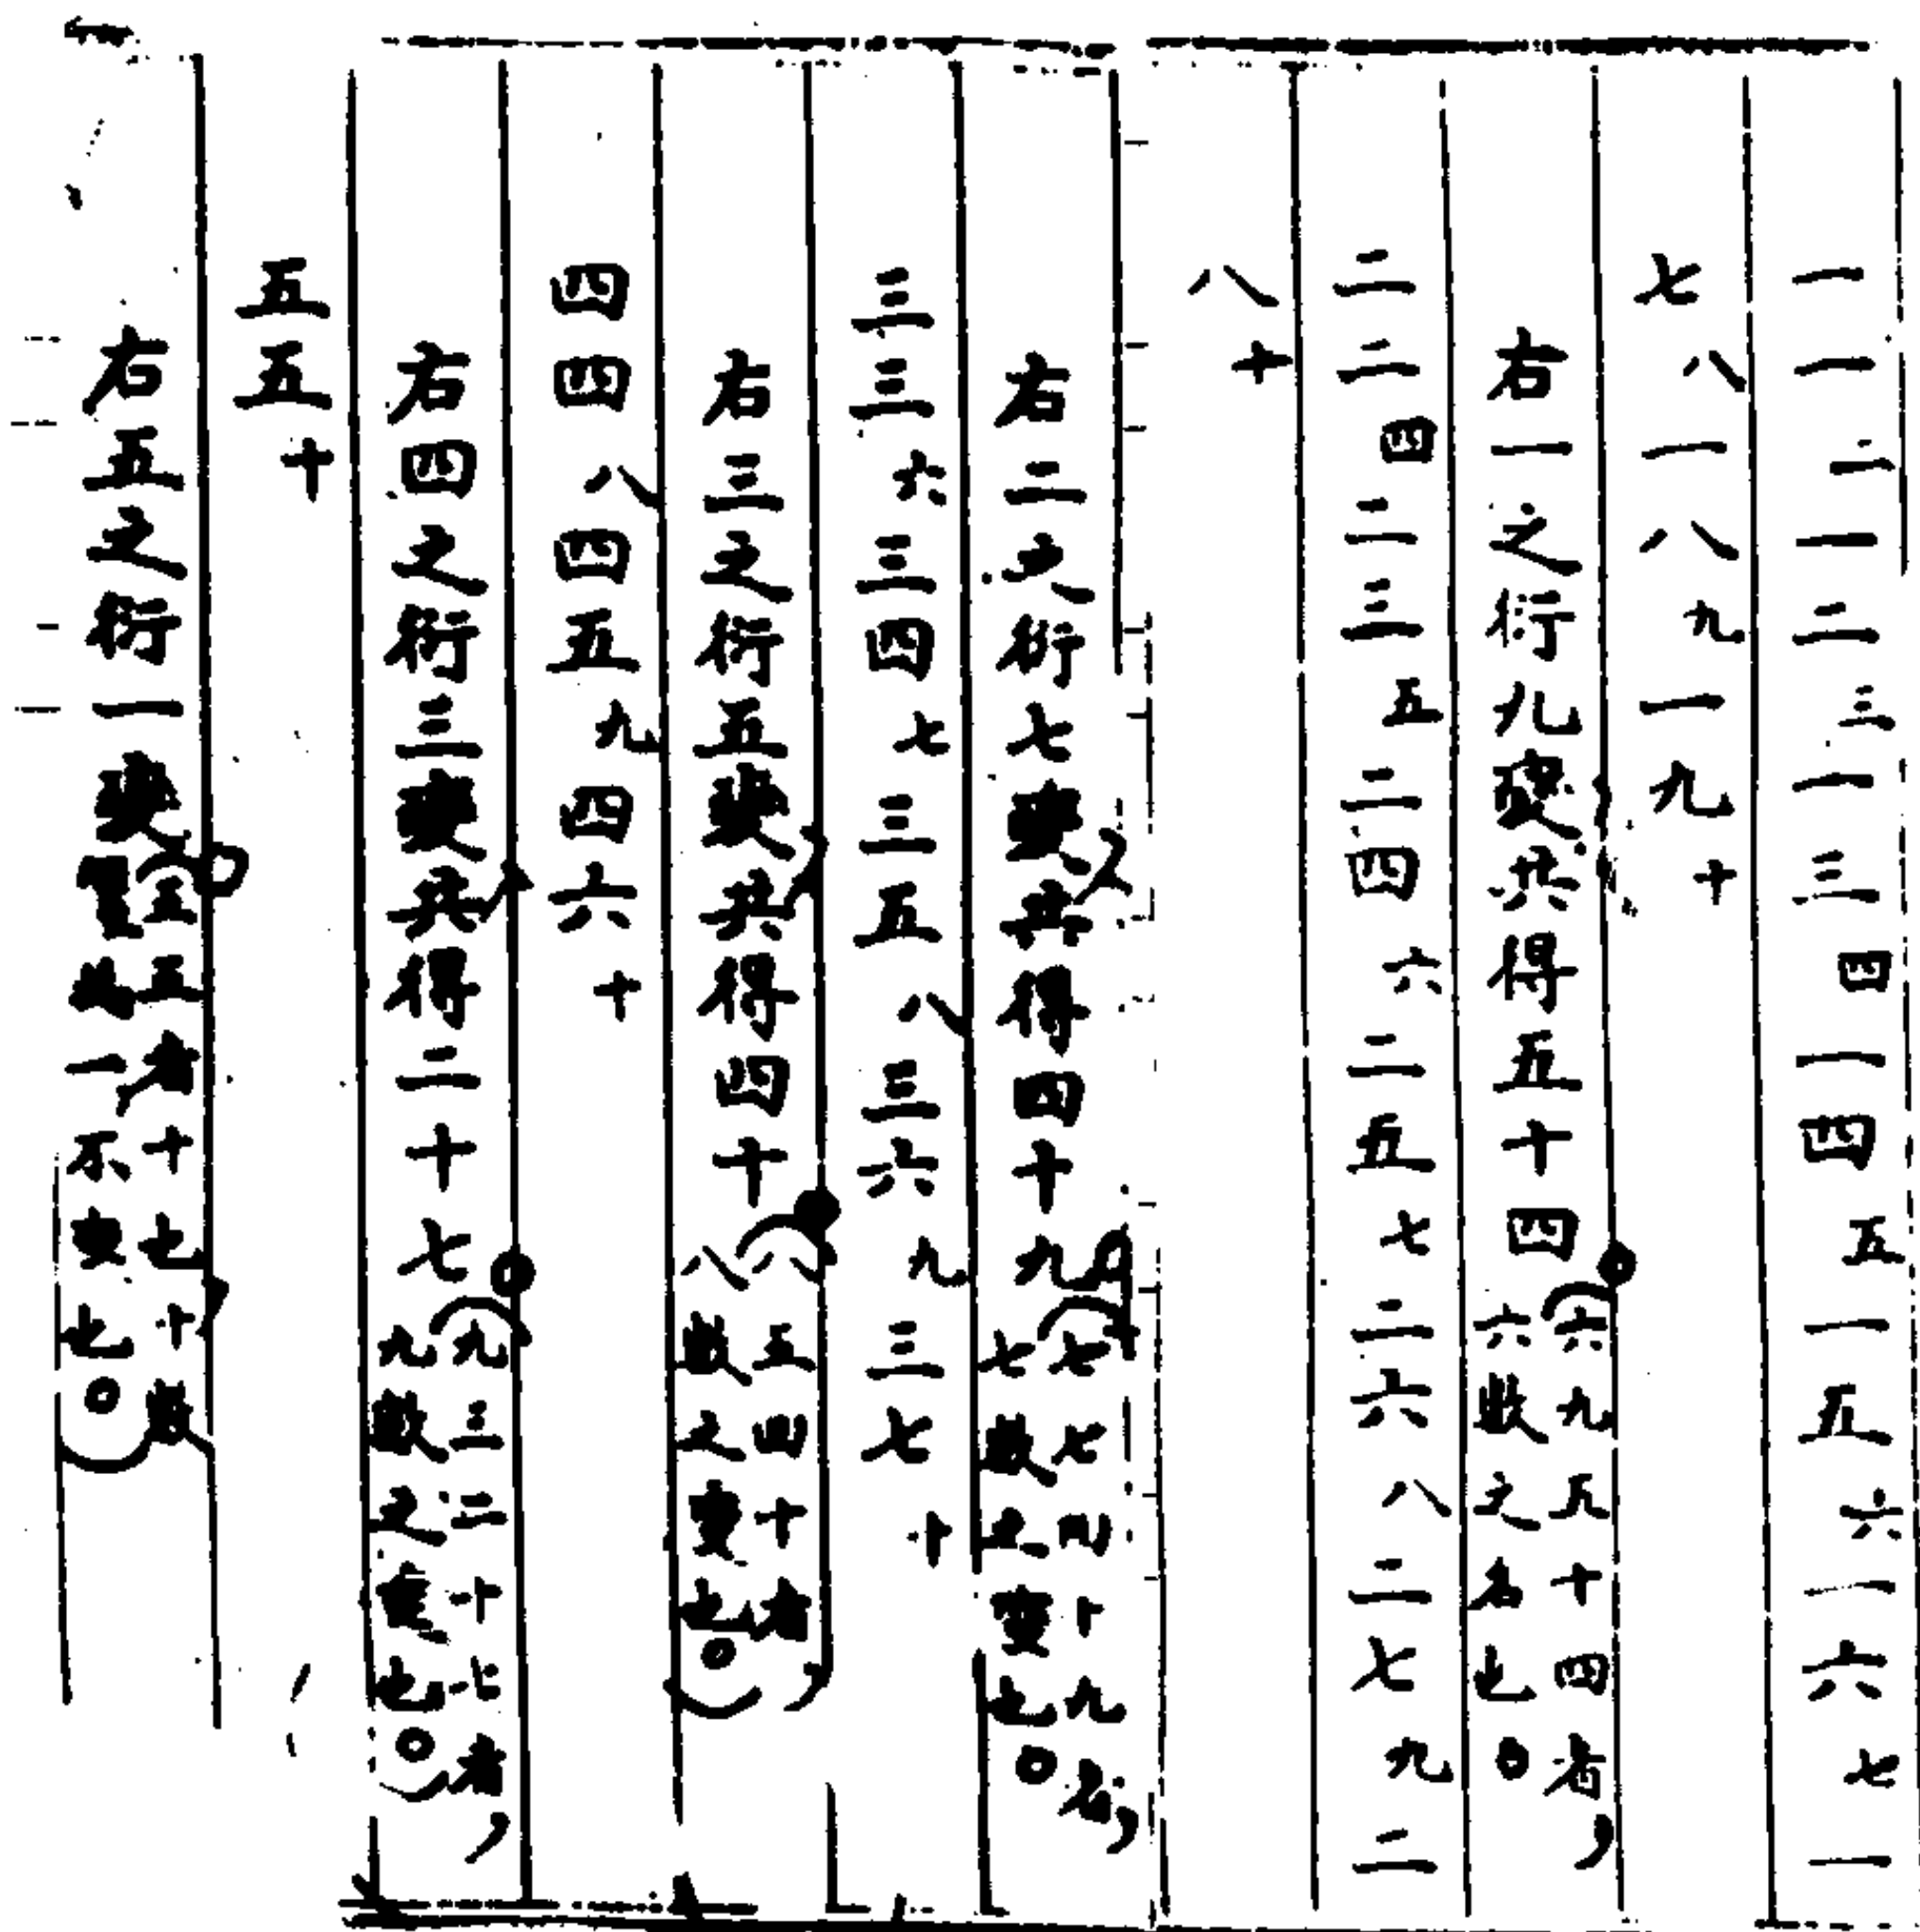 一一二一二三一三四一四五一五六一六七一
七八一八九一九十
右一之衍九變,共得五十四。(六九五十四者,六收之名也。
二二四二三五二四六二五七二六八二七九二
八十
右二之衍七變,共得四十九。(七七四十九者,七數之變也。
三三六三四七三五八三六九三七十
右三之衍五變,共得四十。(八五四十者,八數之變也。)
四四八四五九四六十
右四之衍三變,共得二十七。(九三二十七者,九數之變也。)
五五十
右五之衍一變。(五五者十也,十數一,不變也。)